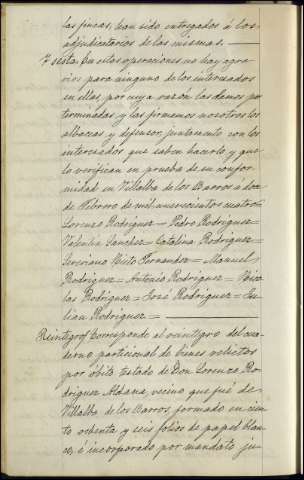 las fincas, han sido entregados á los
adjudicatarios de las mismas.
Y sesta. En estas operaciones no hay agra-
vios para ninguno de los interesados
en ellas, por cuya razón las damos por
terminadas y las firmamos nosotros los
albaceas y defensor, juntamente con los
interesados que saben hacerlo, y que
lo verifican en prueba de su confor-
midad en Villalba de los Barros á doce
de Febrero de mil nuevecientos cuatro=
Lorenzo Rodríguez= Pedro Rodríguez=
Valentin Sánchez= Catalina Rodríguez=
Nieto Fernandez= Manuel
Rodríguez= Antonio Rodríguez= Nico-
las Rodríguez= José Rodríguez= Ju-
lian Rodríguez=
Reintegro/ Corresponde al reintegro del cua-
derno particional de bienes relictos
por óbito testado de Don Lorenzo Ro-
dríguez Aldana, vecino que fué de
Villalba de los Barros, formado en cien-
to ochenta y seis folios de papel blan-
co, é incorporado por mandato ju-